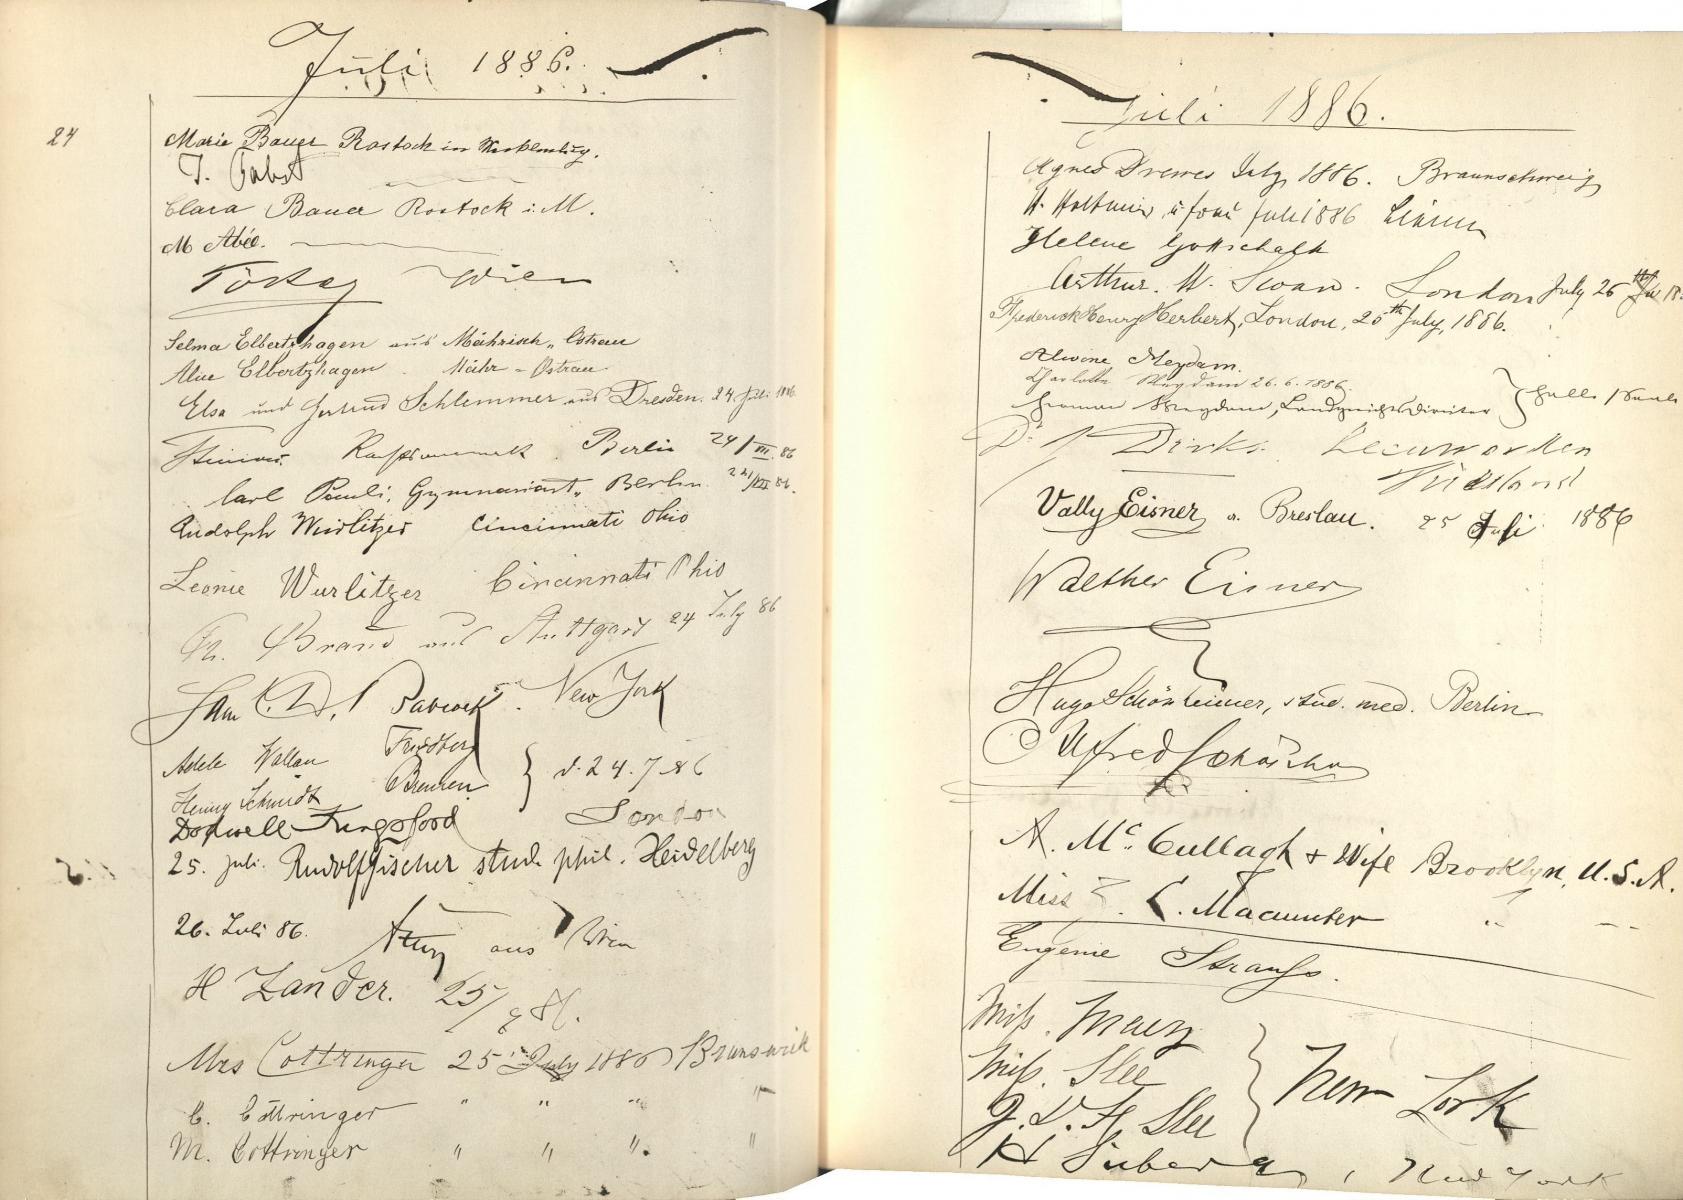 Juli 1886.
24
Marie Bauer Rostock in Mecklenburg.
J. Pabst
Clara Bauer Rostock i. M.
M Abée.
Wien
Selma Elbertzhagen aus Mährisch-Ostrau
Aline Elbertzhagen Mähr-Ostrau
Elsa und Gertrud Schlemmer aus Dresden. 24. Juli 1886
Berlin 24/VII. 86
Carl Pauli, Gymnasiast, Berlin 24/VII 86.
Rudolph Wurlitzer Cincinnati Ohio
Leonie Wurlitzer Cincinnati Ohio
Brand aus Stuttgart 24 July 86
Babcock. New York
Adele Wallau Friedberg
Henny Schmidt Bremen } d. 24.7.86
Dodwell Kingsford London
25. Juli. Rudolf Fischer stud. phil. Heidelberg
26. Juli 86. aus Wien
H Zander. 25/7 86.
Mrs Cottringer 25 July 1886 Brunswick
C. Cottringer " " " "
M. Cottringer " " " "
Juli 1886.
Agnes Drewes July 1886. Braunschweig
u. Frau Juli 1886
Helene Gottschalk
Arthur. W. Swan. London July 26th
Frederick Henry Herbert, London, 25th July, 1886.
Alwine Meydam.
Charlotte Meydam 26.6.1886.
Herman Meydam, Landgerichtsdirector } Halle / Saale
Dr J Dirks. Leeuwarden
Friesland
Vally Eisner a. Breslau. 25 Juli 1886
Walther Eisner
Hugo Schönheimer, stud. med. Berlin
Alfred
A. McCullagh + Wife Brooklyn, U.S.A.
Miss C. Macumber " "
Eugenie Strauss.
Miss. Macy
Miss. Slee
J. D. H. Slee } New York
H , New York